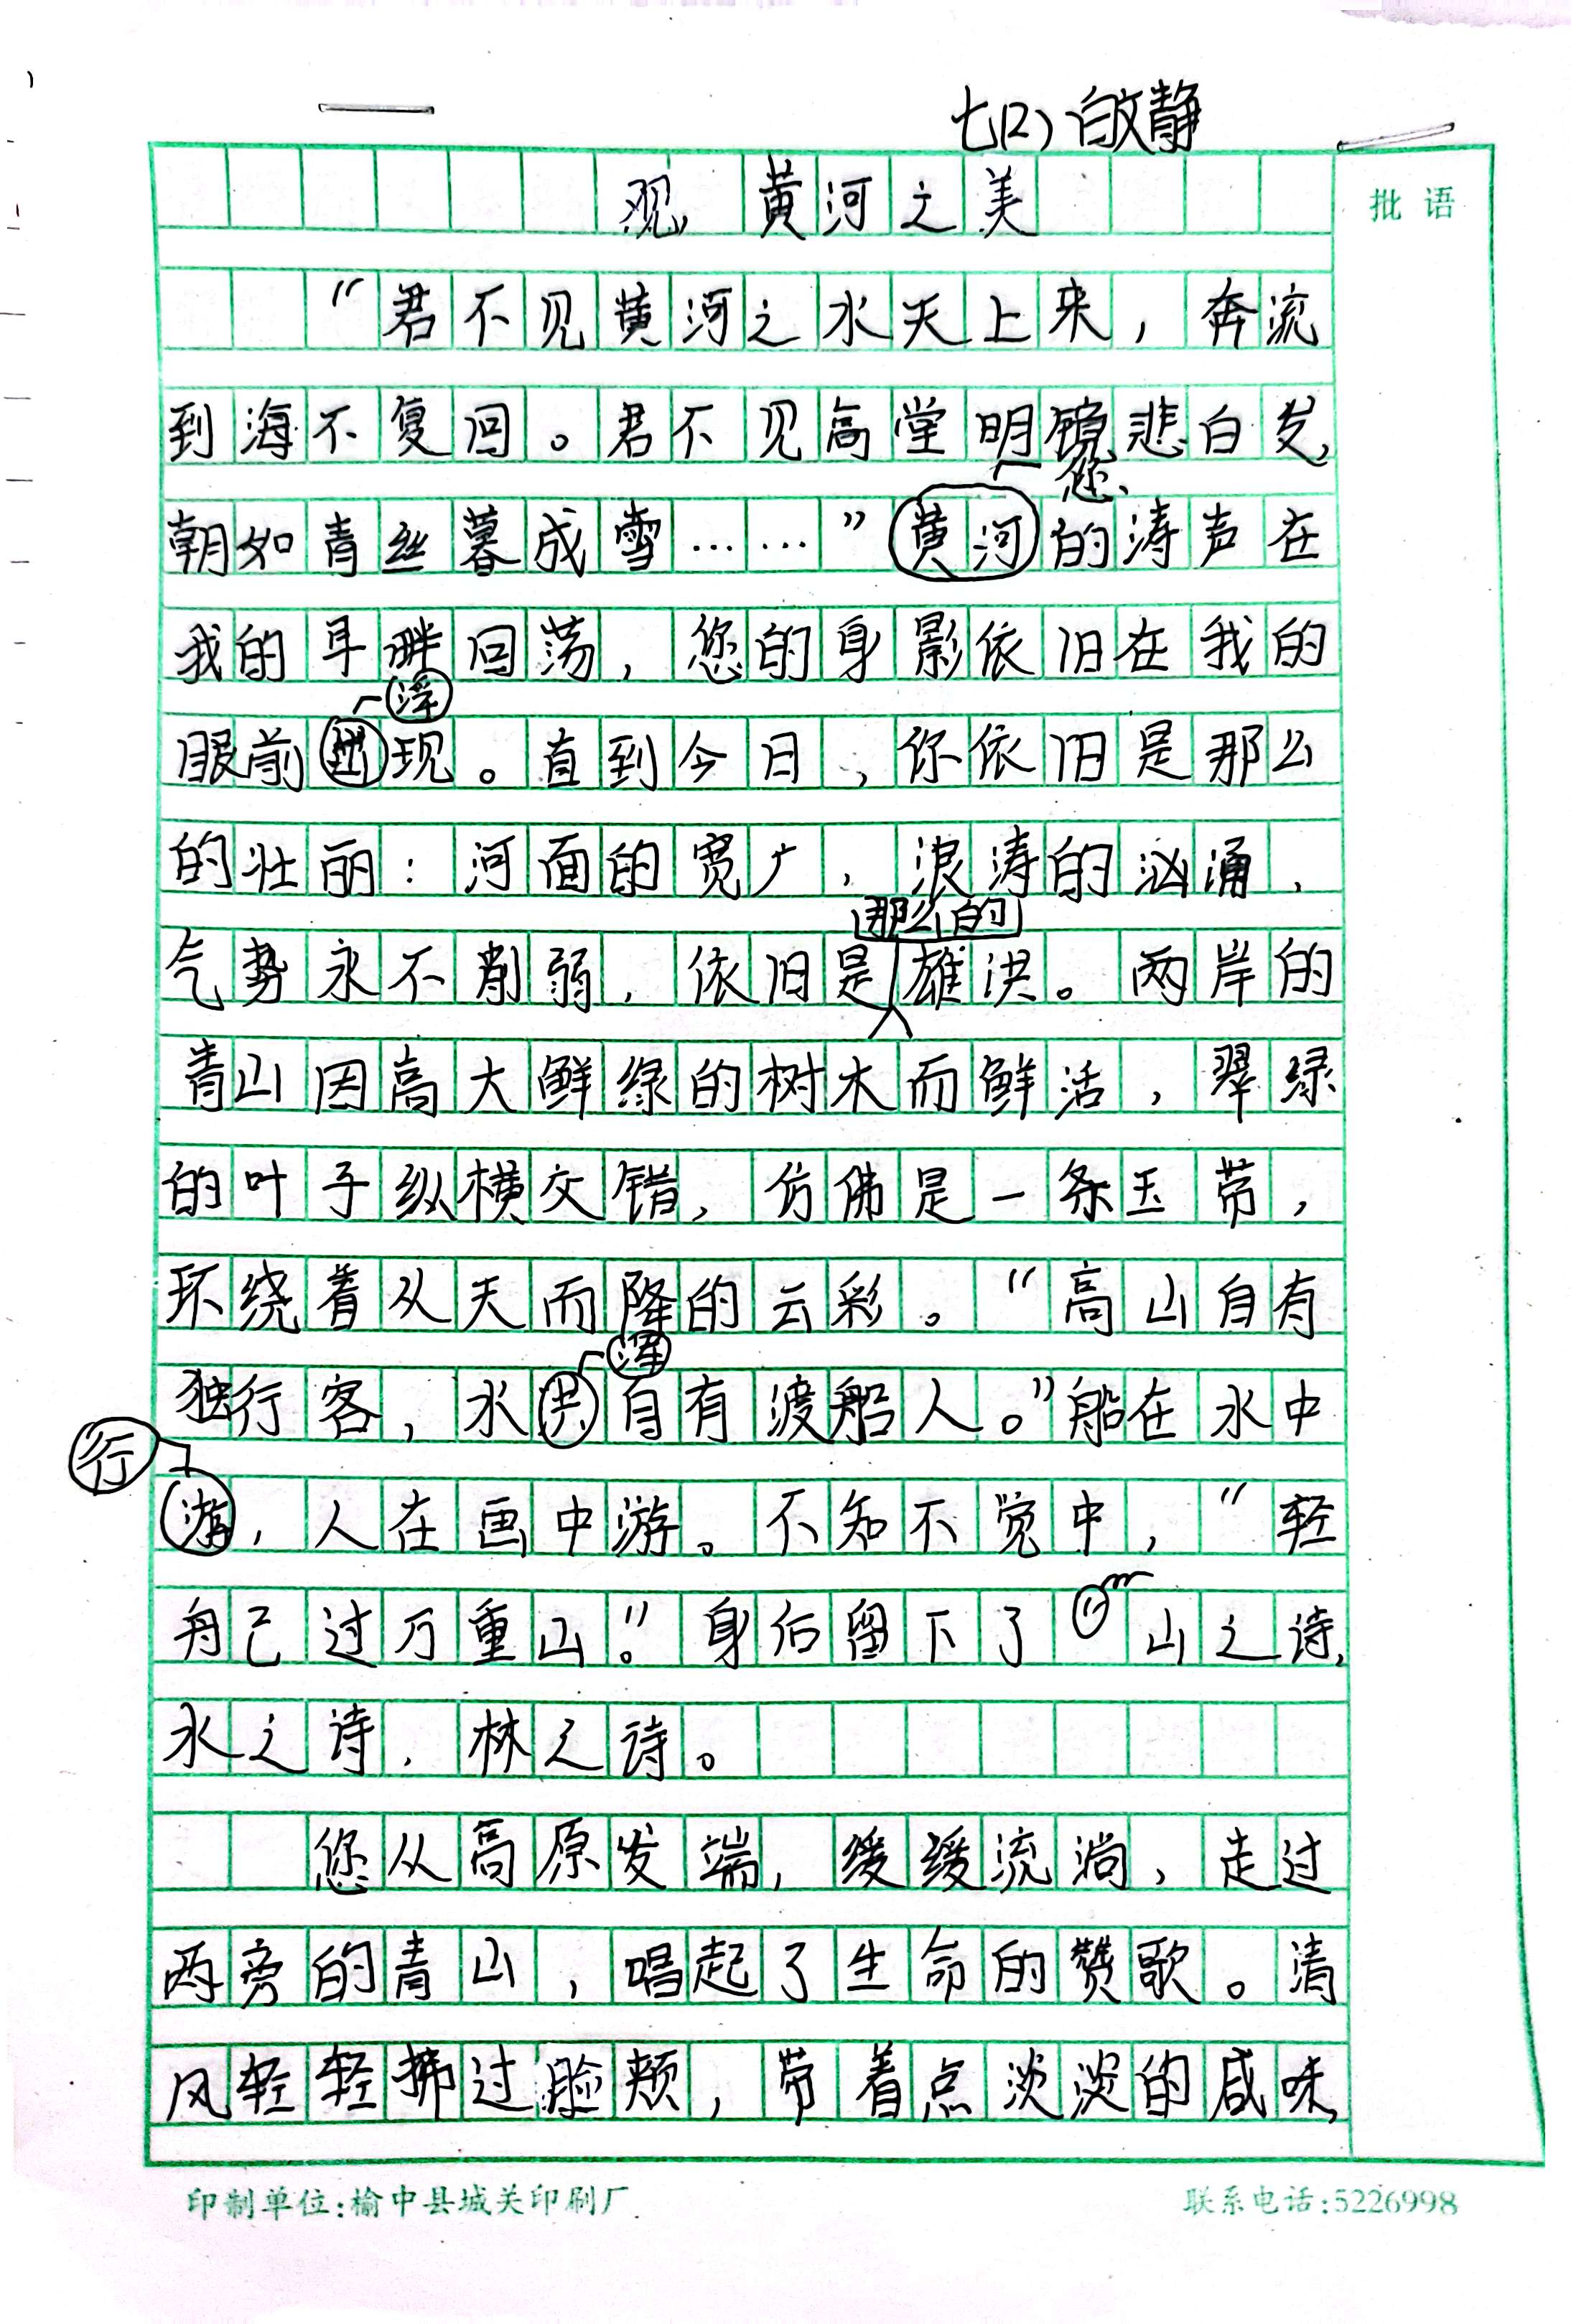 七(2) 白文静
观黄河之美
批语
“君不见黄河之水天上来，奔流
到海不复回。君不见高堂明镜悲白发，
您
朝如青丝暮成雪……”黄河的涛声在
我的耳畔回荡，您的身影依旧在我的
浮
眼前 现。直到今日，你依旧是那么
的壮丽：河面的宽广，浪涛的汹涌，
那么的
气势永不削弱，依旧是雄洪。两岸的
青山因高大鲜绿的树木而鲜活，翠绿
的叶子纵横交错，仿佛是一条玉带，
环绕着从天而降的云彩。“高山自有
浑
独行客，水洪自有渡船人。”船在水中
行
游，人在画中游。不知不觉中，“轻
舟已过万重山”。身后留下了山之诗，
水之诗，林之诗。
您从高原发端，缓缓流淌，走过
两旁的青山，唱起了生命的赞歌。清
风轻轻拂过脸颊，带着点淡淡的咸味，
印制单位:榆中县城关印刷厂
联系电话:5226998